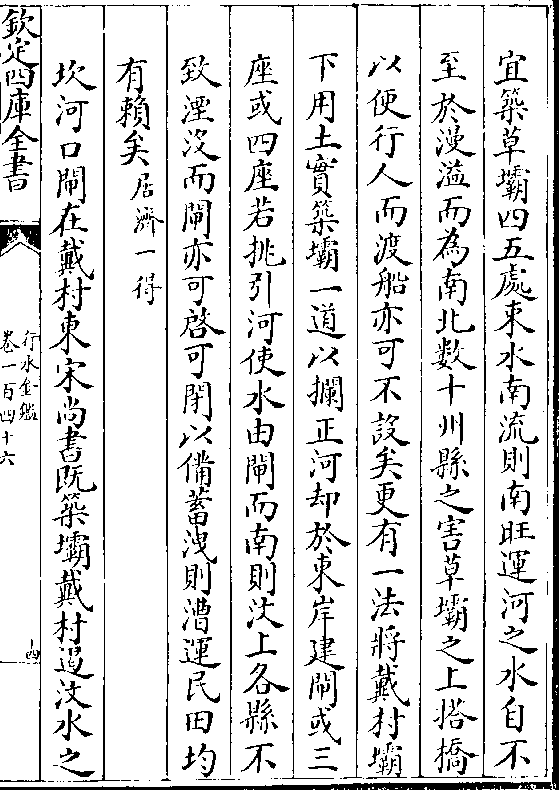 宜築草壩四五處束水南流則南旺運河之水自不
至於漫溢而為南北數十州縣之害草壩之上搭橋
以便行人而渡船亦可不設矣更有一法將戴村壩
下用土實築壩一道以攔正河却於東岸建閘或三
座或四座若挑引河使水由閘而南則汶上各縣不
致湮沒而閘亦可啓可閉以備蓄洩則漕運民田均
有賴矣居濟一得
坎河口閘在戴村東宋尚書既築壩戴村遏汶水之
欽定四庫全書
行水金鑑
卷一百四十六
四